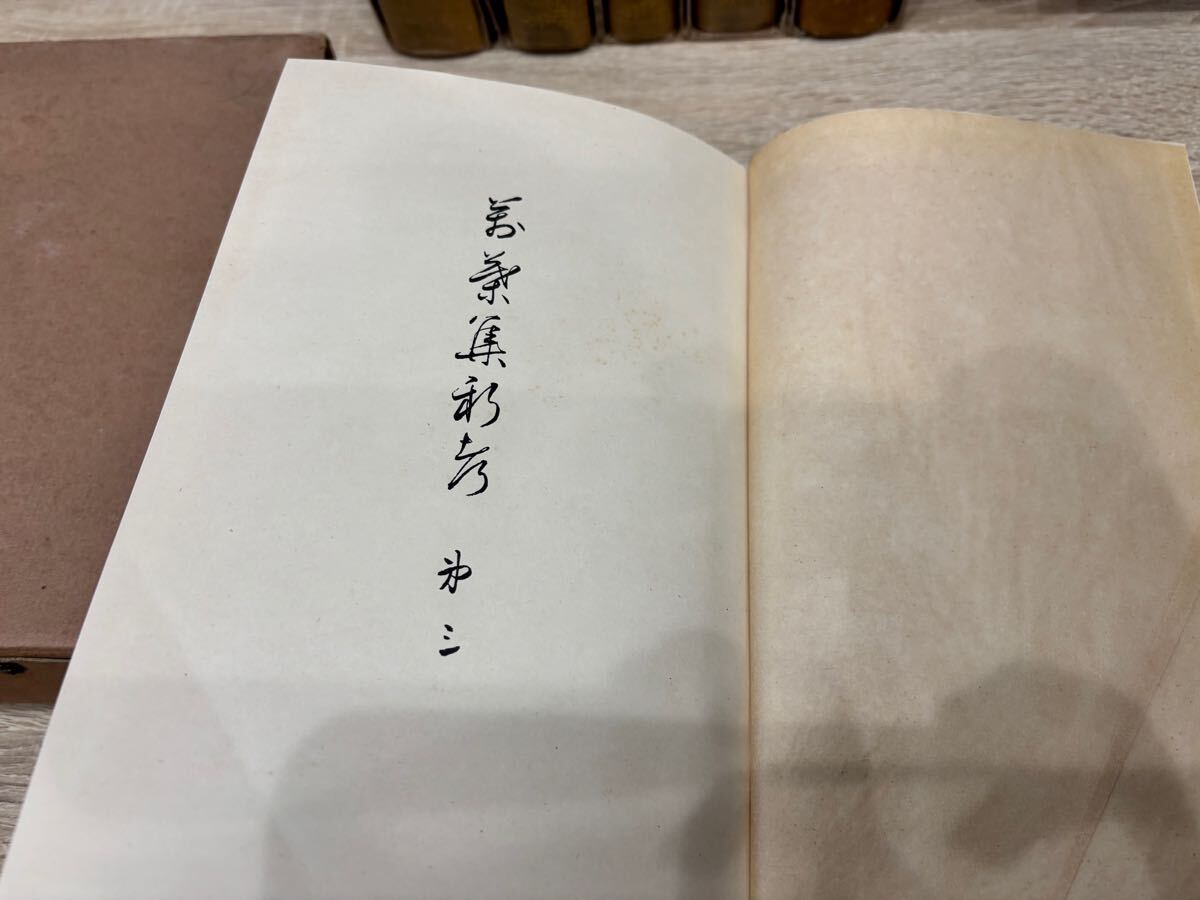 萬葉集新考 第三